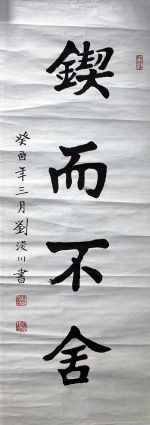 鍥而不舍
癸酉年三月劉淡川書